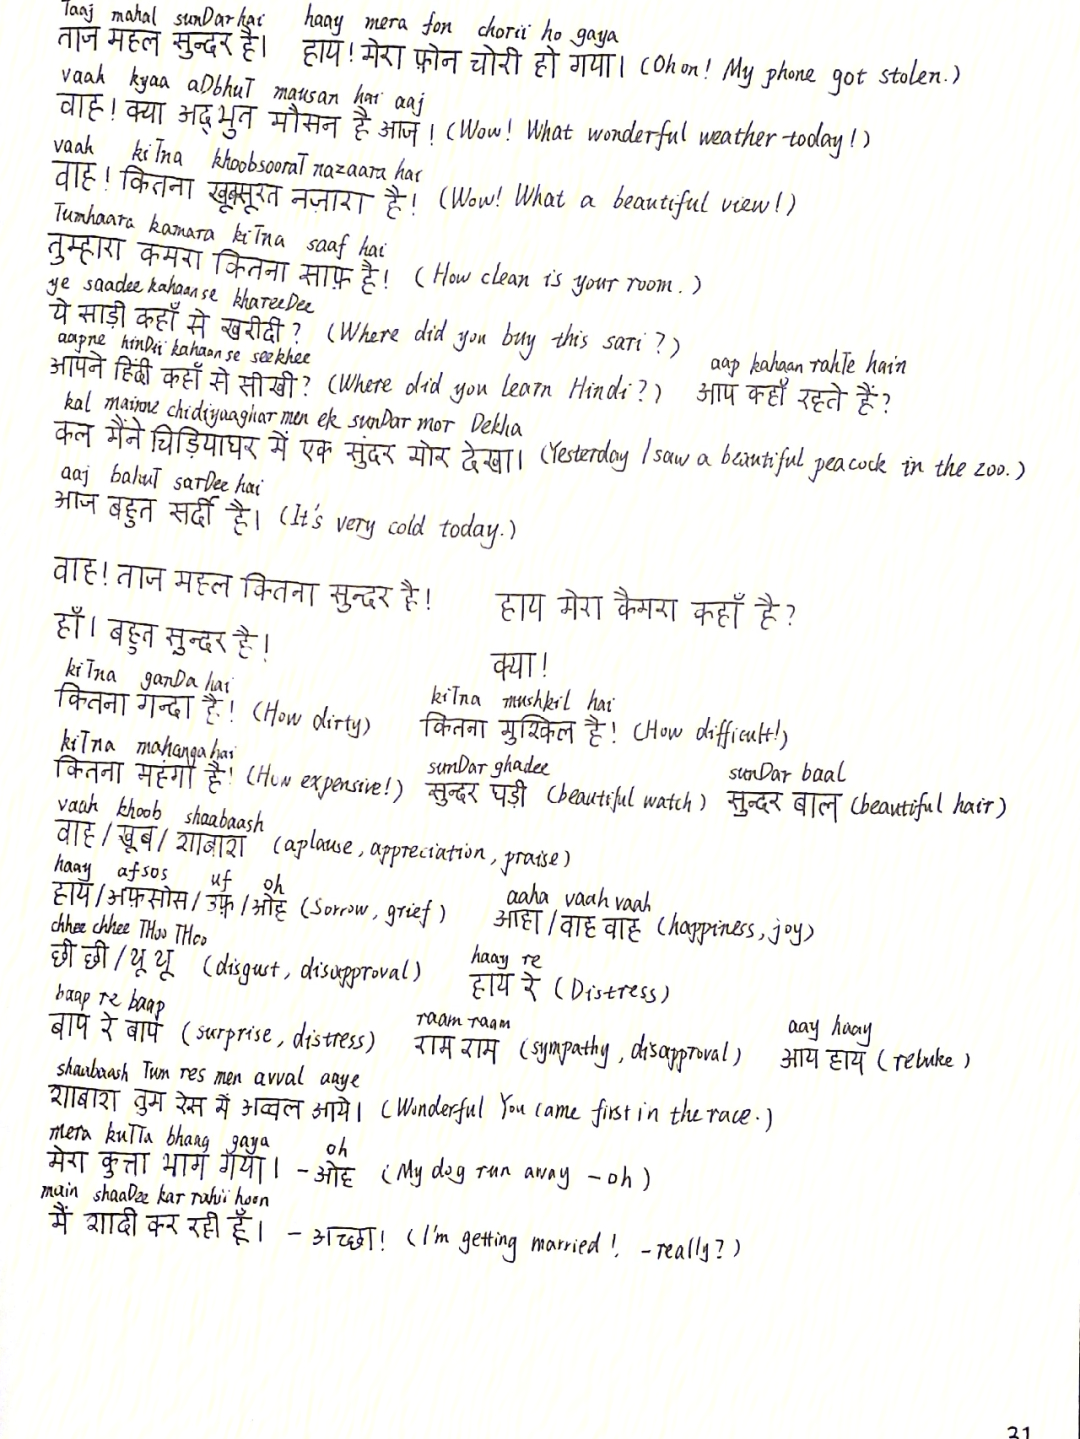 Taaj mahal sunDar hai haay mera fon chorii ho gaya
ताज महल सुन्दर है। हाय! मेरा फ़ोन चोरी हो गया। (Oh on! My phone got stolen.)
vaah kyaa aDbhuT mausan hai aaj
वाह! क्या अद्भुत मौसन है आज! (Wow! What wonderful weather today!)
vaah kiTna khoobsooraT nazaara hai
वाह! कितना खूबसूरत नज़ारा है! (Wow! What a beautiful view!)
Tumhaara kamara kiTna saaf hai
तुम्हारा कमरा कितना साफ़ है! (How clean is your room.)
ye saadee kahaan se khareeDee
ये साड़ी कहाँ से खरीदी? (Where did you buy this sari?)
aapne hinDii kahaan se seekhee aap kahaan rahTe hain
आपने हिंदी कहाँ से सीखी? (Where did you learn Hindi?) आप कहाँ रहते हैं?
kal maine chidiyaaghar men ek sunDar mor Dekha
कल मैंने चिड़ियाघर में एक सुंदर मोर देखा। (Yesterday I saw a beautiful peacock in the zoo.)
aaj bahuT sarDee hai
आज बहुत सर्दी है। (It's very cold today.)
वाह! ताज महल कितना सुन्दर है! हाय मेरा कैमरा कहाँ है?
हाँ। बहुत सुन्दर है! क्या!
kiTna ganDa hai kiTna mushkil hai
कितना गन्दा है! (How dirty) कितना मुश्किल है! (How difficult!)
kiTna mahanga hai sunDar ghadee sunDar baal
कितना महंगा है! (How expensive!) सुन्दर घड़ी (beautiful watch) सुन्दर बाल (beautiful hair)
vaah khoob shaabaash
वाह/खूब/शाबाश (aplause, appreciation, praise)
haay afsos uf oh aaha vaah vaah
हाय/अफ़सोस/उफ़/ओह (Sorrow, grief) आहा/वाह वाह (happiness, joy)
chhee chhee THoo THoo haay re
छी छी/थू थू (disgust, disapproval) हाय रे (Distress)
baap re baap raam raam aay haay
बाप रे बाप (surprise, distress) राम राम (sympathy, disapproval) आय हाय (rebuke)
shaabaash Tum res men avval aaye
शाबाश तुम रेस में अव्वल आये। (Wonderful You came first in the race.)
mera kuTTa bhaag gaya oh
मेरा कुत्ता भाग गया। - ओह (My dog run away - oh)
main shaaDee kar rahii hoon
मैं शादी कर रही हूँ। - अच्छा! (I'm getting married! - really?)
31